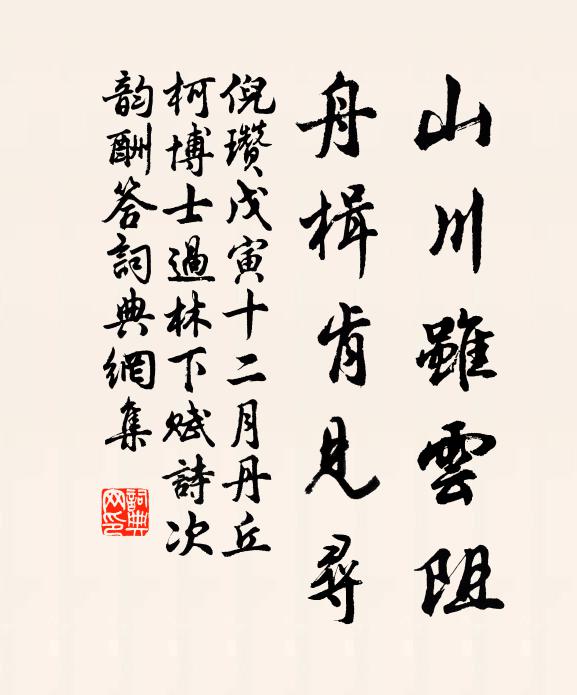 山川雖雲阻
舟楫肯見尋
倪瓚戊寅十二月丹丘
柯博士過林下賦詩次
韵酬答詞典網集
詞典
网印